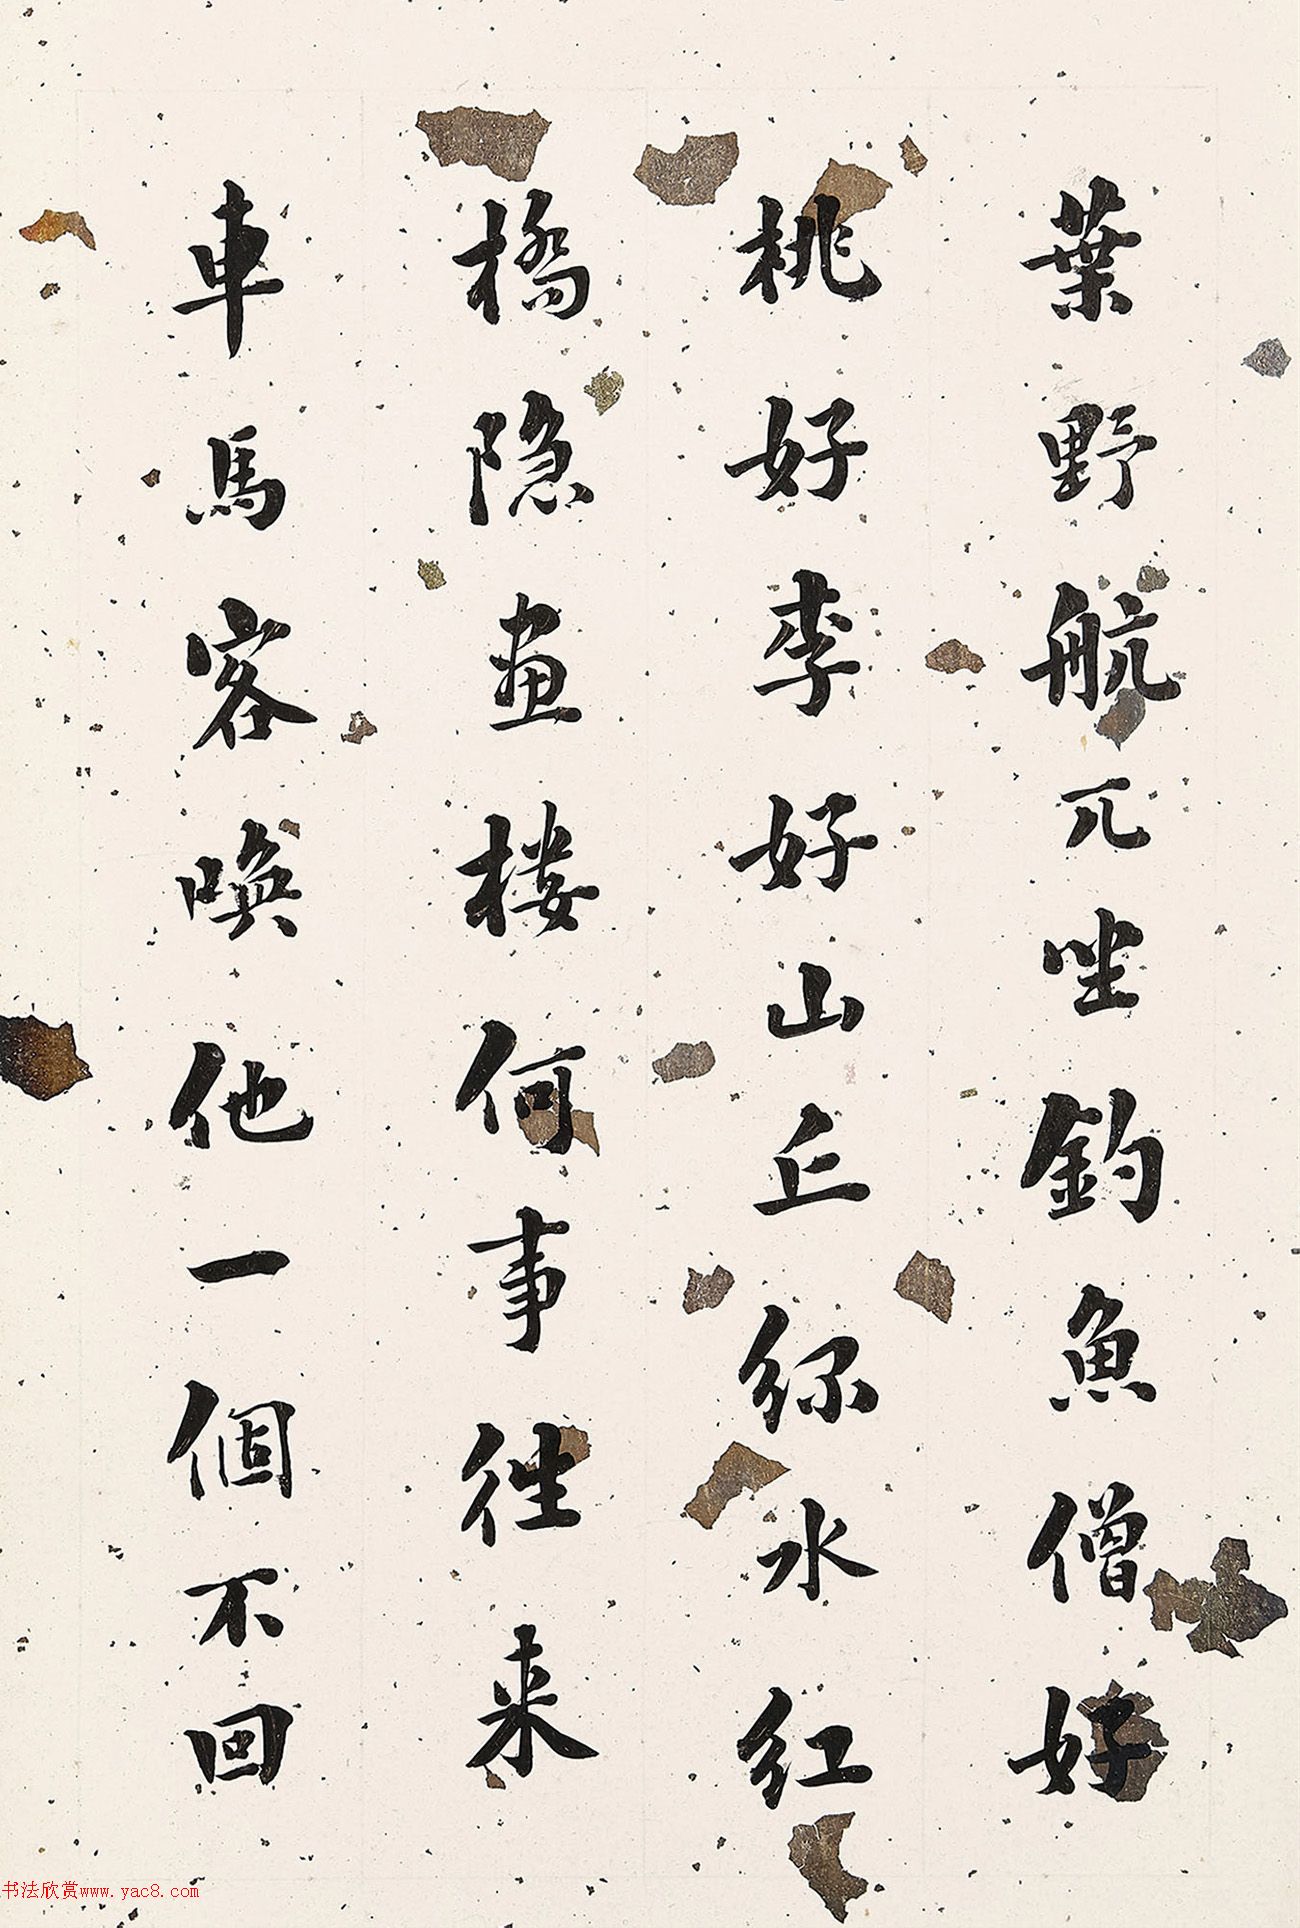 葉野航兀坐釣魚僧好
桃好李好山丘綠水紅
橋隐畫樓何事往来
車馬客喚他一個不回
书法欣赏www.yac8.com